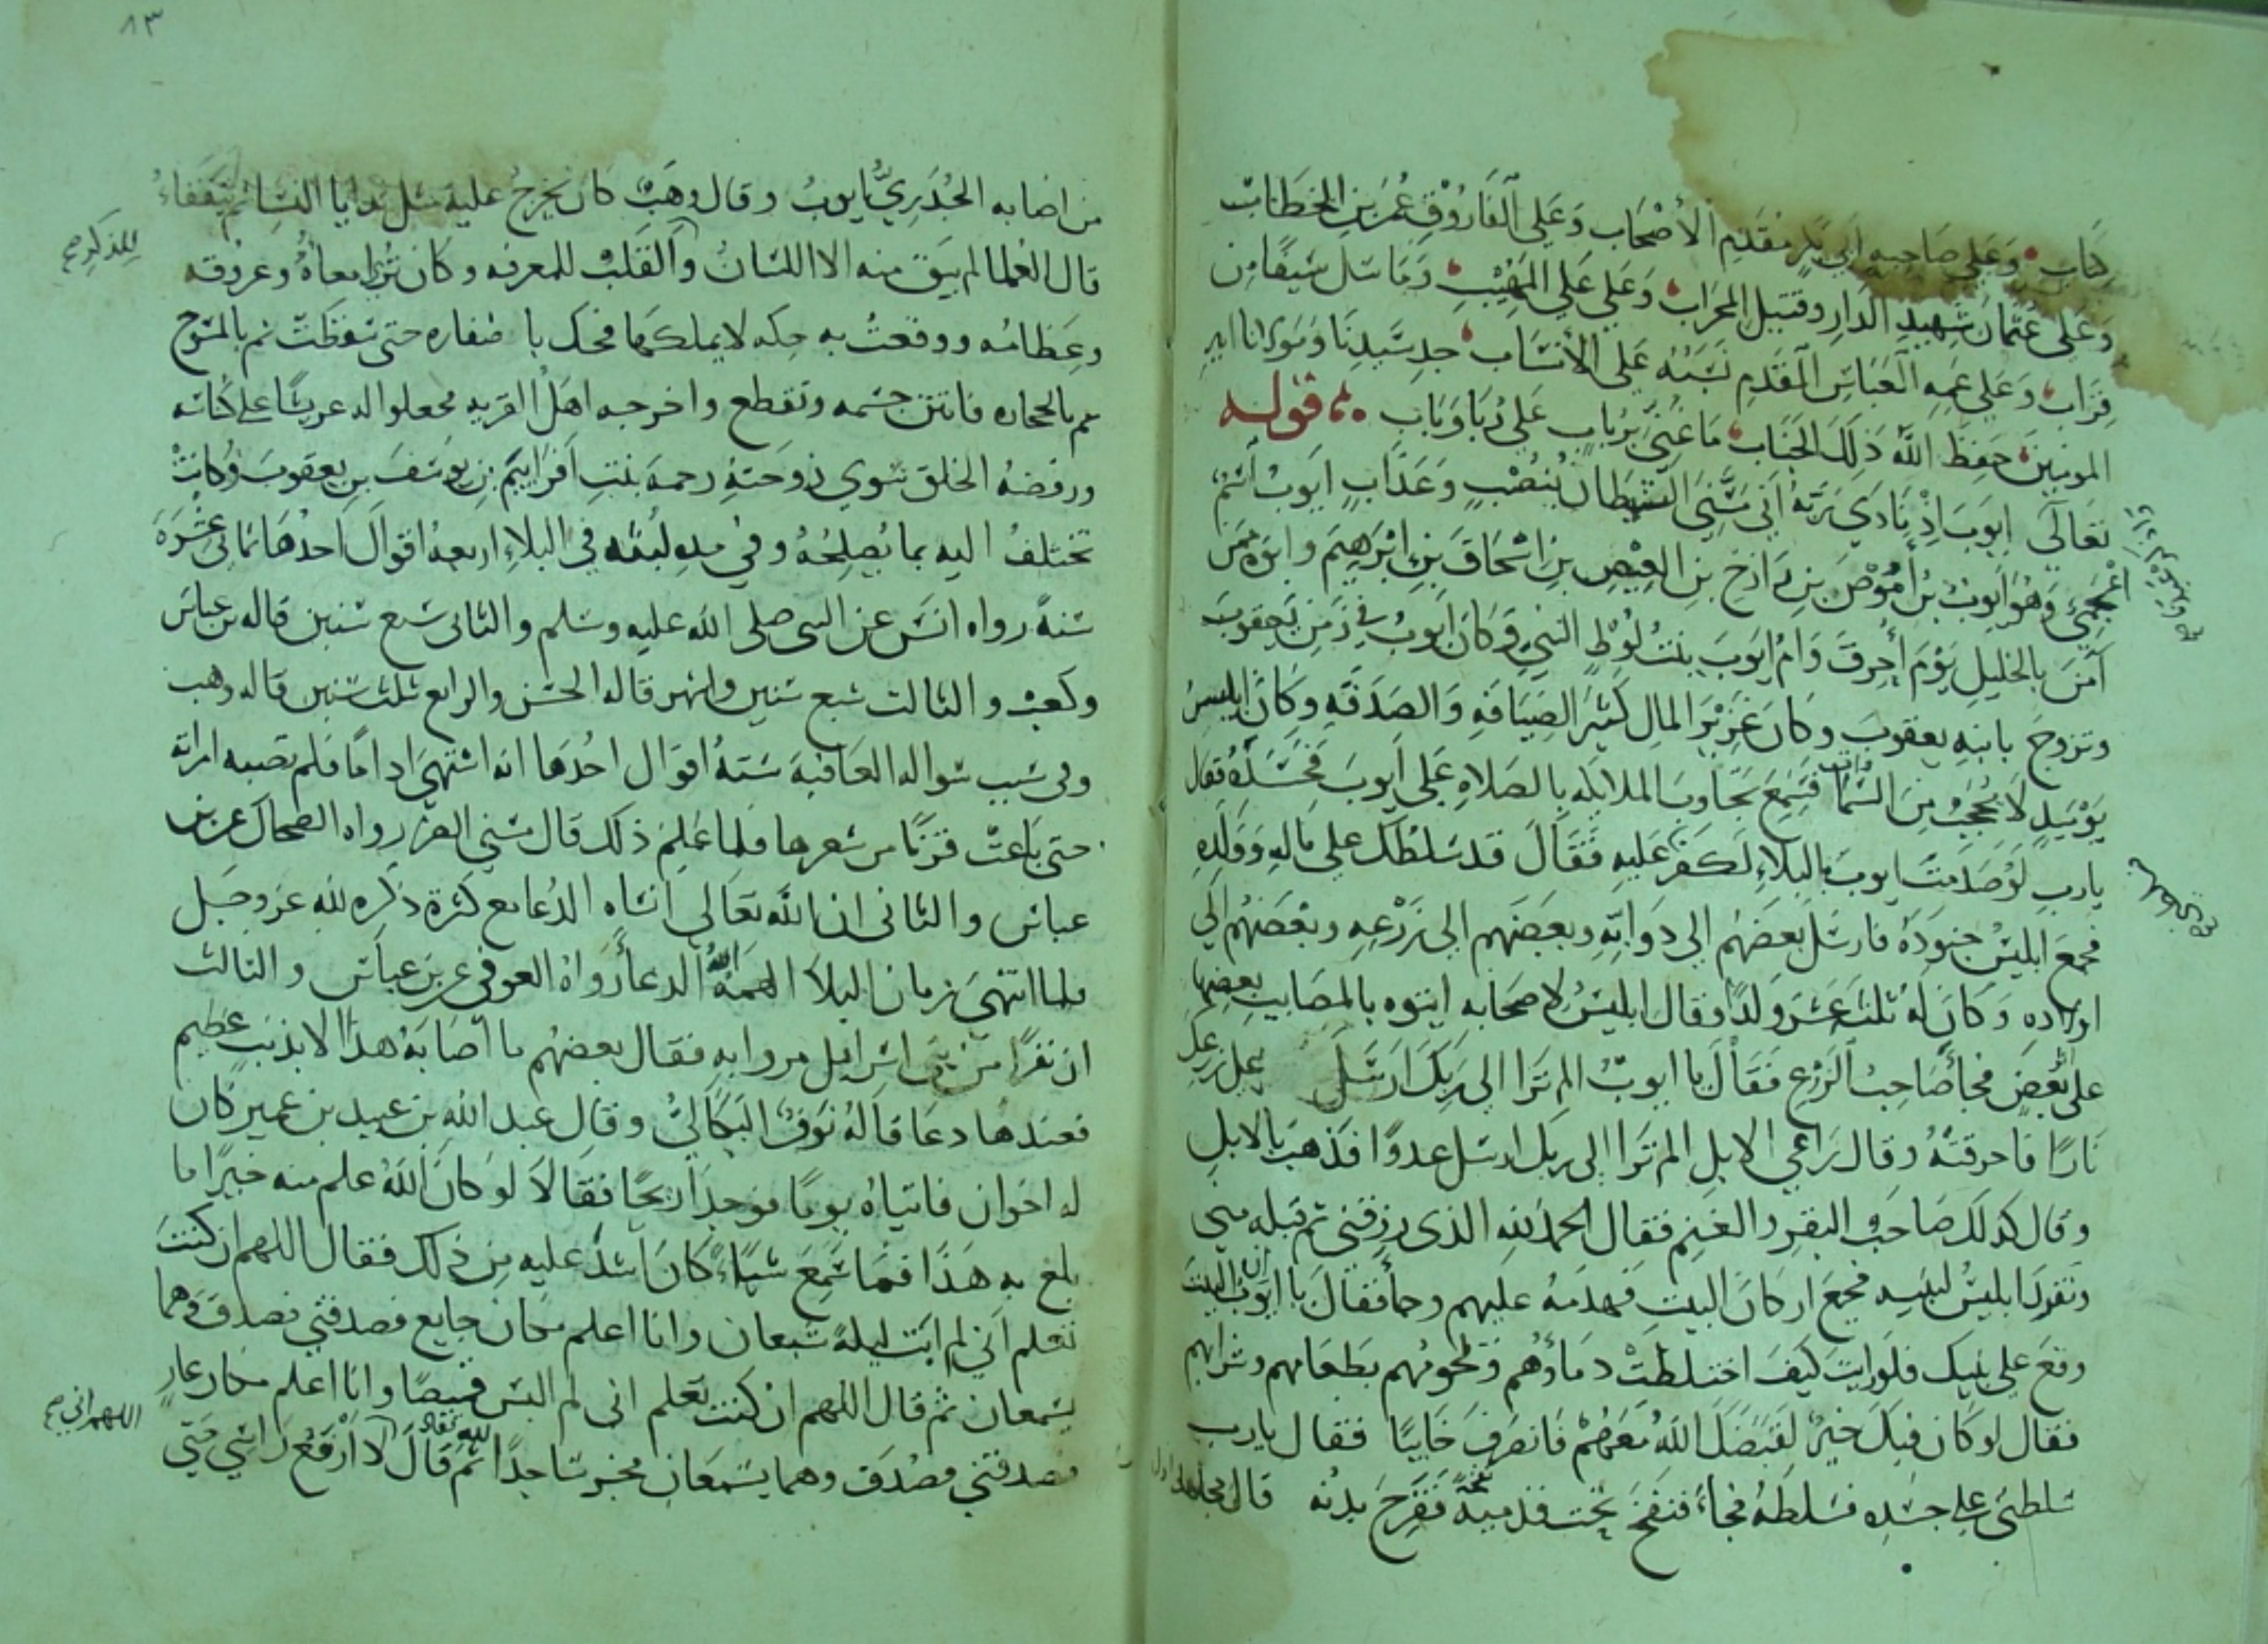 ركاب وعلى صاحبه ابي بكر مقدم الأصحاب وعلى الفاروق عمر بن الخطاب
وعلى عثمان شهيد الدار وقتيل المحراب وعلى علي المهيب وما سل سيفا من
قراب وعلى عمه العباس المقدم نسبه على الأنساب جد سيدنا ومولانا امير
المومنين حفظ الله ذلك الجناب ما غني برباب على ربا وباب قوله
تعالى ايوب اذ نادى ربه اني مسني الشيطان بنصب وعذاب ايوب اسم
اعجمي وهو ايوب بن أموص بن رازخ بن العيص بن اسحاق بن ابرهيم وابوه ممن
آمن بالخليل يوم أحرق وام ايوب بنت لوط النبي وكان ايوب في زمن يعقوب
وتزوج بابنه يعقوب وكان غزير المال كثير الضيافة والصدقه وكان ابليس
يوميذ لا يحجب من السما فسمع تجاوب الملايكه بالصلاه على ايوب فحسده فقال
يارب لو صدمت ايوب بالبلاء لكفر عليه فقال قد سلطك على ماله وولده
فجمع ابليس جنوده فارسل بعضهم الى دوابه وبعضهم الى زرعه وبعضهم الي
اولاده وكان له ثلث عشر ولدا وقال ابليس لاصحابه ايتوه بالمصايب بعضها
على بعض فجأ صاحب الزرع فقال يا ايوب الم ترا الى ربك ارسل على زرعك
نارا فاحرقته وقال راعي الابل الم ترا الى ربك ارسل عدوا فذهب بالابل
وقال كذلك صاحب البقر والغنم فقال الحمد لله الذي رزقني ثم قبله مني
وتفرد ابليس لبنيه فجمع اركان البيت فهدمه عليهم وجأ فقال يا ايوب ان البيت
وقع على بنيك فلو رايت كيف اختلطت دماؤهم ولحومهم بطعامهم وشرابهم
فقال لو كان فيك خير لقبضك الله معهم فانصرف خايبا فقال يارب
سلطني على جسده فسلطه فجأ فنفخ تحت قدميه نفخة فقرح بدنه قال مجاهد اول
٨٣
من اصابه الجدري ايوب وقال وهب كان يخرج عليه مثل ثدايا النسا ثم يتفقاء
للذكر صح
قال العلما لم يبق منه الا اللسان والقلب للمعرفه وكان ترا امعاؤه وعروقه
وعظامه ووقعت به حكه لا يملكها فحك باضفاره حتى سقطت ثم بالمسوح
ثم بالحجاره فانتن جسمه وتقطع واخرجه اهل القريه فجعلوا له عريشا على كناسه
ورفضه الخلق سوي زوجته رحمه بنت افراييم بن يوسف بن يعقوب وكانت
تختلف اليه بما يصلحه وفي مده لبثه في البلاء اربعه اقوال احدها ثماني عشره
سنة رواه انس عن النبي صلى الله عليه وسلم والثاني سبع سنين قاله بن عباس
وكعب والثالث سبع سنين واشهر قاله الحسن والرابع ثلث سنين قاله وهب
وفي سبب سواله العافية ستة اقوال احدها انه اشتهى اداما فلم تصبه امراته
حتى باعت قرنا من شعرها فلما علم ذلك قال مسني الضر رواه الضحاك عن بن
عباس والثاني ان الله تعالى انساه الدعا مع كثرة ذكره لله عز وجل
فلما انتهى زمان البلا الهمه الله الدعا رواه العوفي عن بن عباس والثالث
ان نفرا من بني اسرايل مروا به فقال بعضهم ما اصابه هذا الا بذنب عظيم
فعندها دعا قاله نوف البكالي وقال عبد الله بن عبيد بن عمير كان
له اخوان فاتياه يوما فوجدا ريحا فقالا لو كان الله علم منه خيرا ما
بلغ به هذا فما سمع شيا كان اشد عليه من ذلك فقال اللهم ان كنت
تعلم اني لم ابت ليلة شبعان وانا اعلم مكان جايع فصدقني فصدق وهما
يسمعان ثم قال اللهم ان كنت تعلم اني لم البس قميصا وانا اعلم مكان عار
اللهم اني صح
فصدقني فصدق وهما يسمعان فخر ساجدا لله تعالى ثم قال لا ارفع راسي حتي